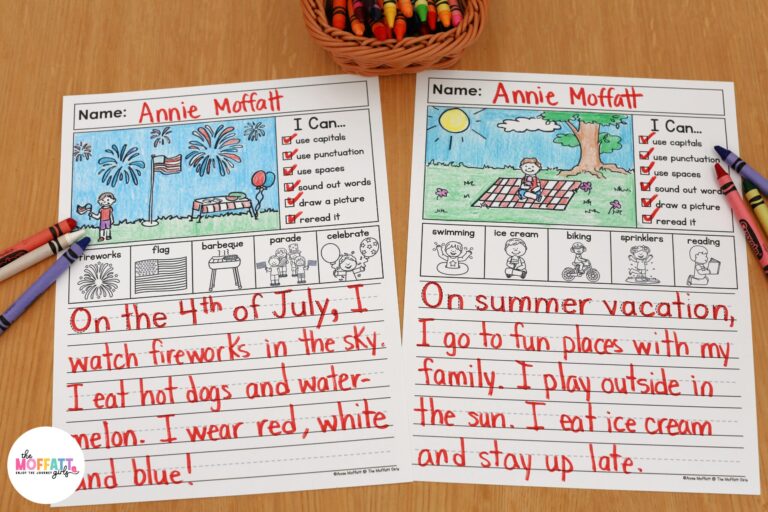 Name: Annie Moffatt
I Can...
use capitals
use punctuation
use spaces
sound out words
draw a picture
reread it
fireworks flag barbeque parade celebrate
On the 4th of July, I
watch fireworks in the sky.
I eat hot dogs and water-
melon. I wear red, white
and blue!
©Annie Moffatt @ The Moffatt Girls
Name: Annie Moffatt
I Can...
use capitals
use punctuation
use spaces
sound out words
draw a picture
reread it
swimming ice cream biking sprinklers reading
On summer vacation,
I go to fun places with my
family. I play outside in
the sun. I eat ice cream
and stay up late.
©Annie Moffatt @ The Moffatt Girls
the
MOFFATT
girls
ENJOY THE JOURNEY